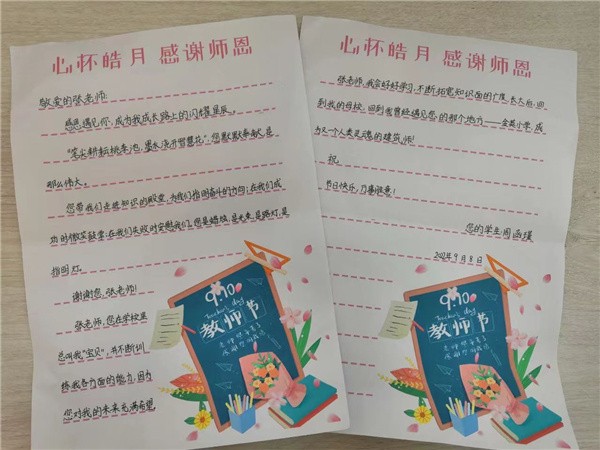 心怀皓月 感谢师恩
敬爱的张老师:
感恩遇见你,成为我成长路上的闪耀星辰。
"笔尖耕耘桃李池,墨水浇开智慧花",您默默奉献,是
那么伟大。
您带我们走进知识的殿堂,为我们指明奋斗的方向;在我们成
功时微笑鼓掌;在我们失败时安慰我们。您是蜡烛,是光束,是路灯,是
指明灯。
谢谢您,张老师!
张老师,您在学校里
总叫我"宝贝",并不断训
练我各方面的能力,因为
您对我的未来充满希望。
9.10
Teacher's day
教师节
心怀皓月 感谢师恩
张老师,我会好好学习,不断拓宽知识面的广度,长大后,回
到我的母校,回到我曾经遇见您的那个地方——金英小学,成
为又一个人类灵魂的建筑师!
祝
节日快乐,万事胜意!
您的学生周函瑾
9月8日
9.10
Teacher's day
教师节